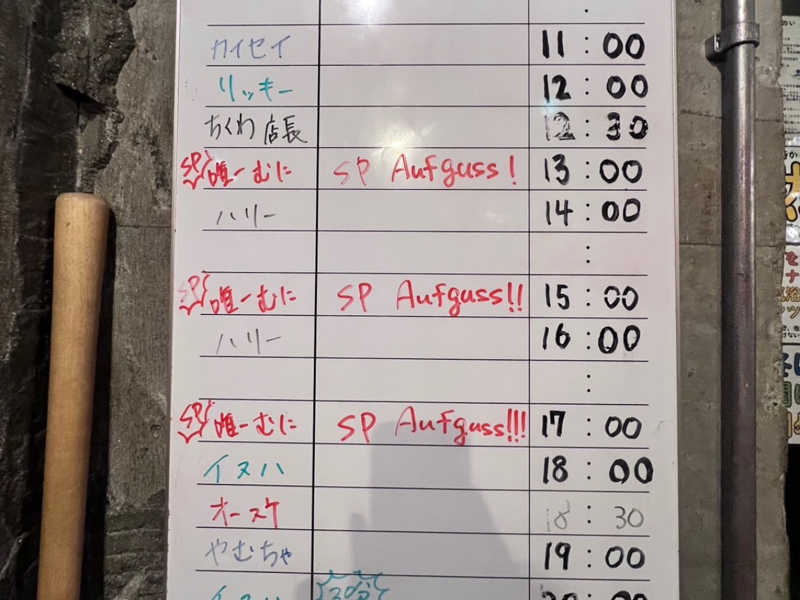 カイセイ 11:00
リッキー 12:00
ちくわ店長 12:30
SP 唯一むに SP Aufguss! 13:00
ハリー 14:00
:
SP 唯一むに SP Aufguss!! 15:00
ハリー 16:00
:
SP 唯一むに SP Aufguss!!! 17:00
イヌハ 18:00
オースケ 18:30
やむちゃ 19:00